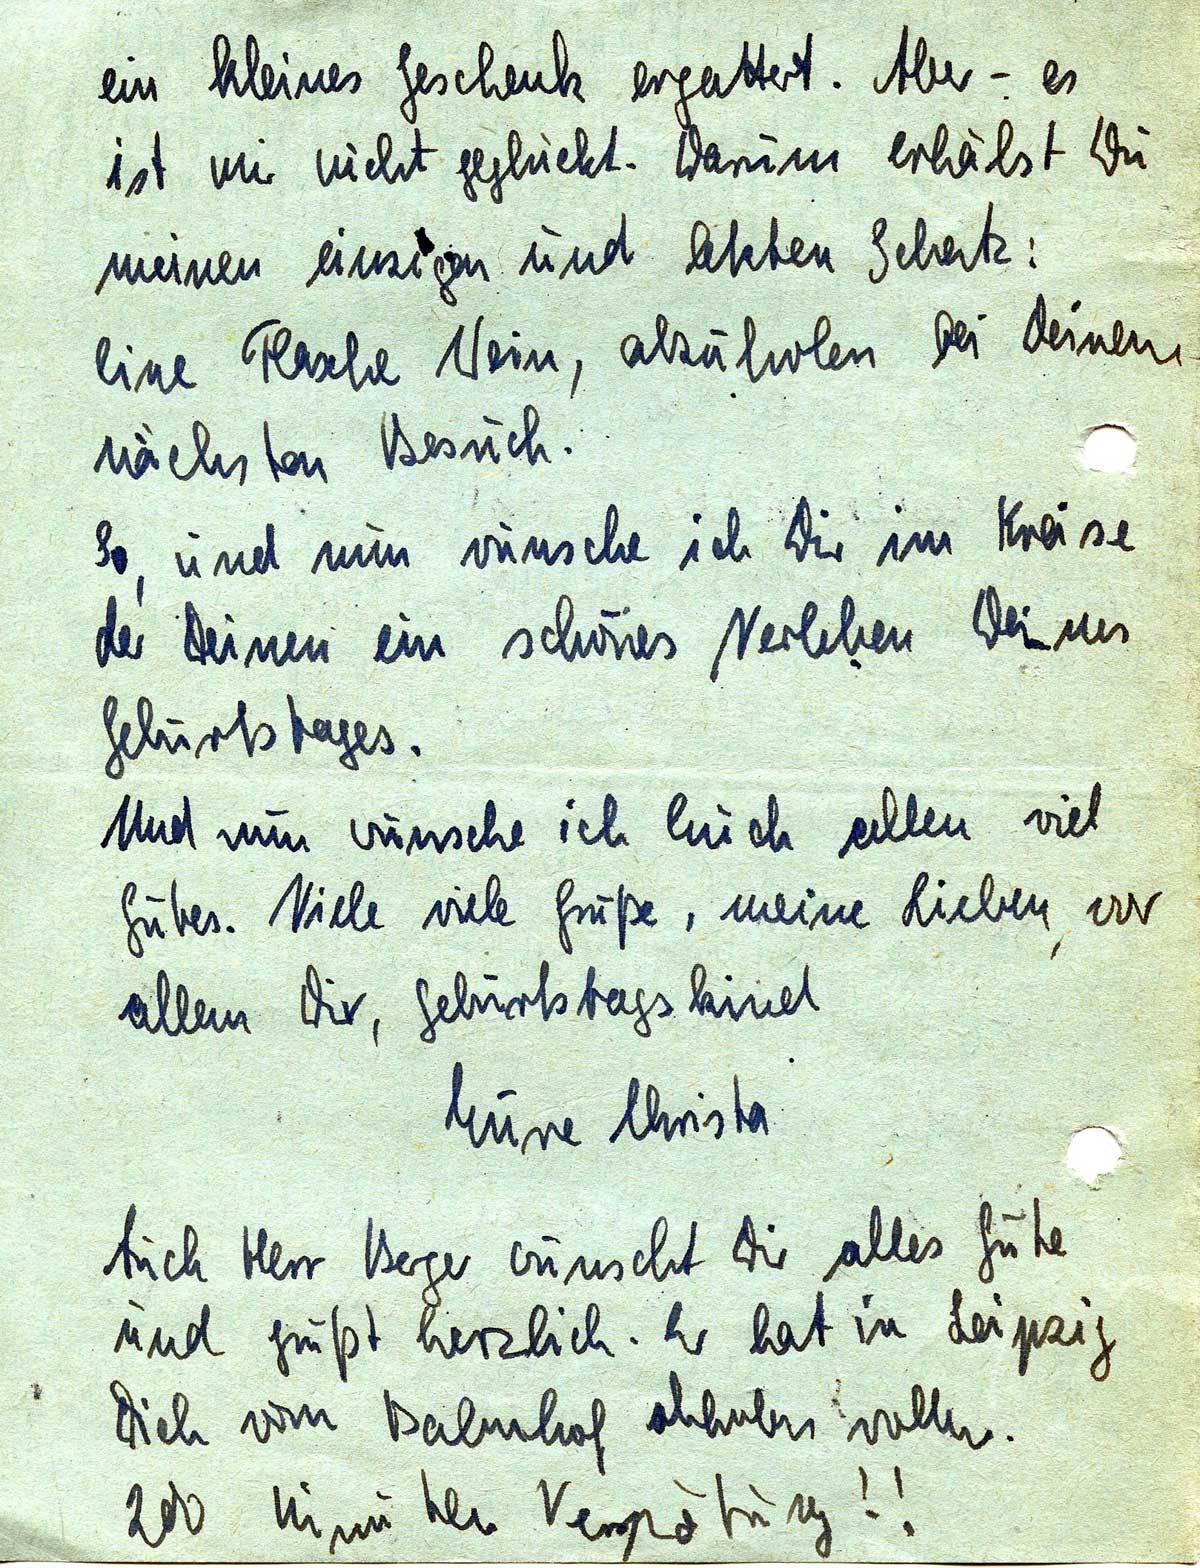 ein kleines Geschenk ergattert. Aber - es
ist mir nicht geglückt. Darum erhälst Du
meinen einzigen und letzten Schatz:
eine Flasche Wein, abzuholen bei Deinem
nächsten Besuch.
So, und nun wünsche ich Dir im Kreise
der Deinen ein schönes Verleben Deines
Geburtstages.
Und nun wünsche ich Euch allen viel
Gutes. Viele viele Grüße, meine Lieben, vor
allem Dir, Geburtstagskind
Eure Christa
Auch Herr Berger wünscht Dir alles Gute
und grüßt herzlich. Er hat in Leipzig
Dich vom Bahnhof abholen wollen.
200 Minuten Verspätung!!